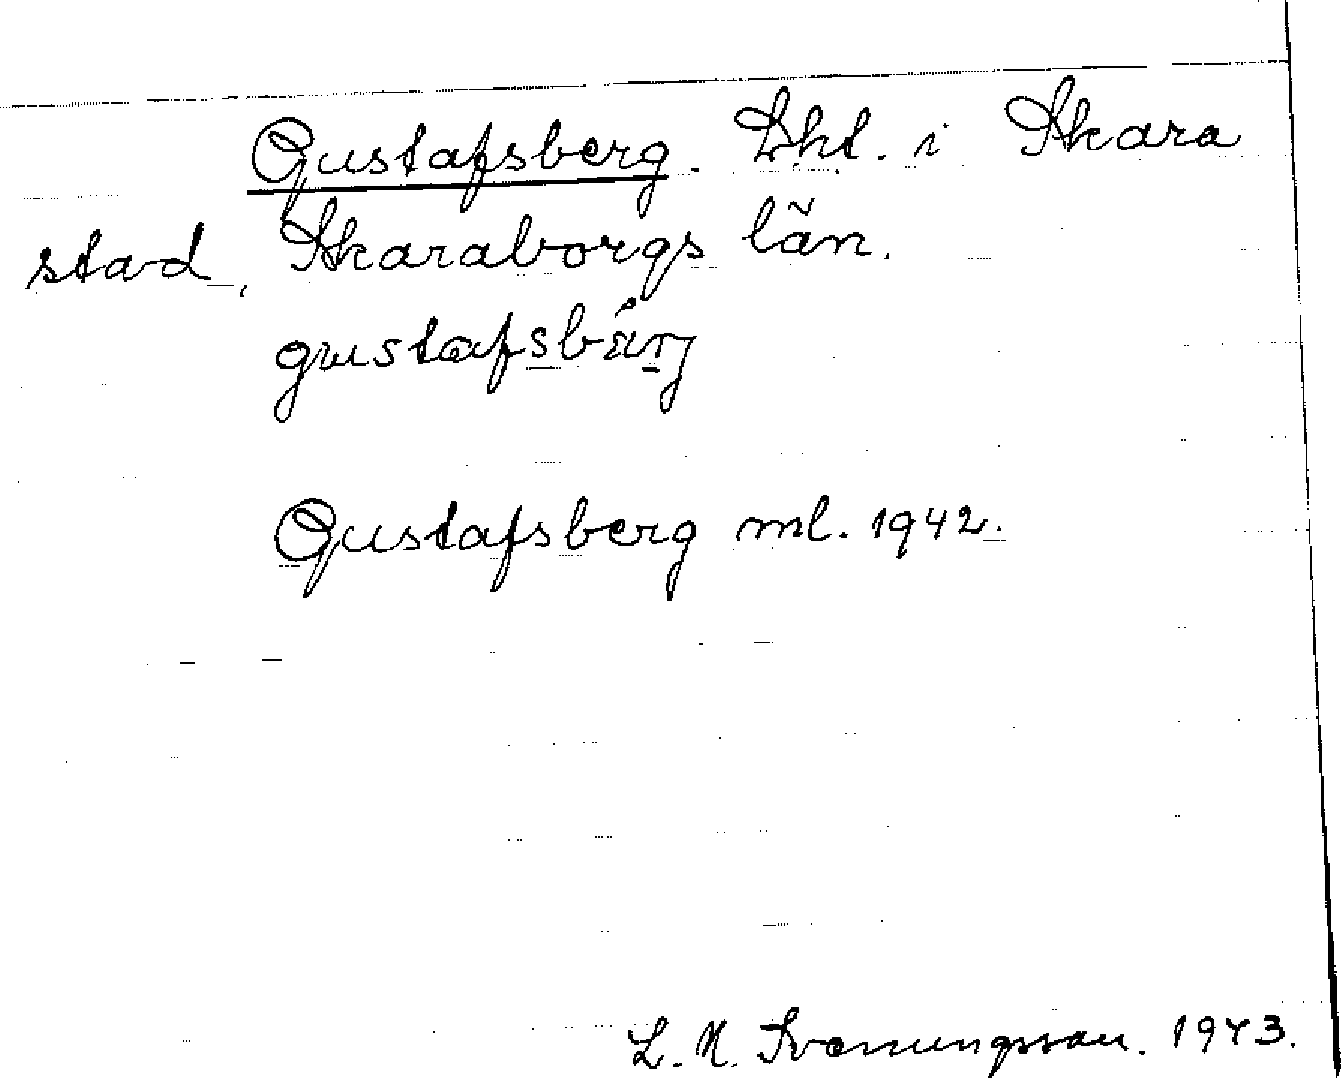 Gustafsberg. Lht. i Skara
stad, Skaraborgs län.
gustafsbärj
Gustafsberg ml. 1942.
L. N. Svanungsson. 1943.